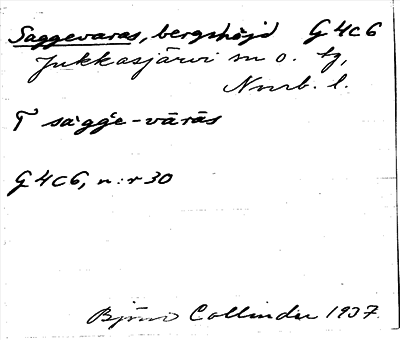 Saggevaras, bergshöjd G4c6
Jukkasjärvi sn o. tg,
Norrb. l.
T sàgg̀e-vārās
G4c6, n:r 30
Björn Collinder 1937.